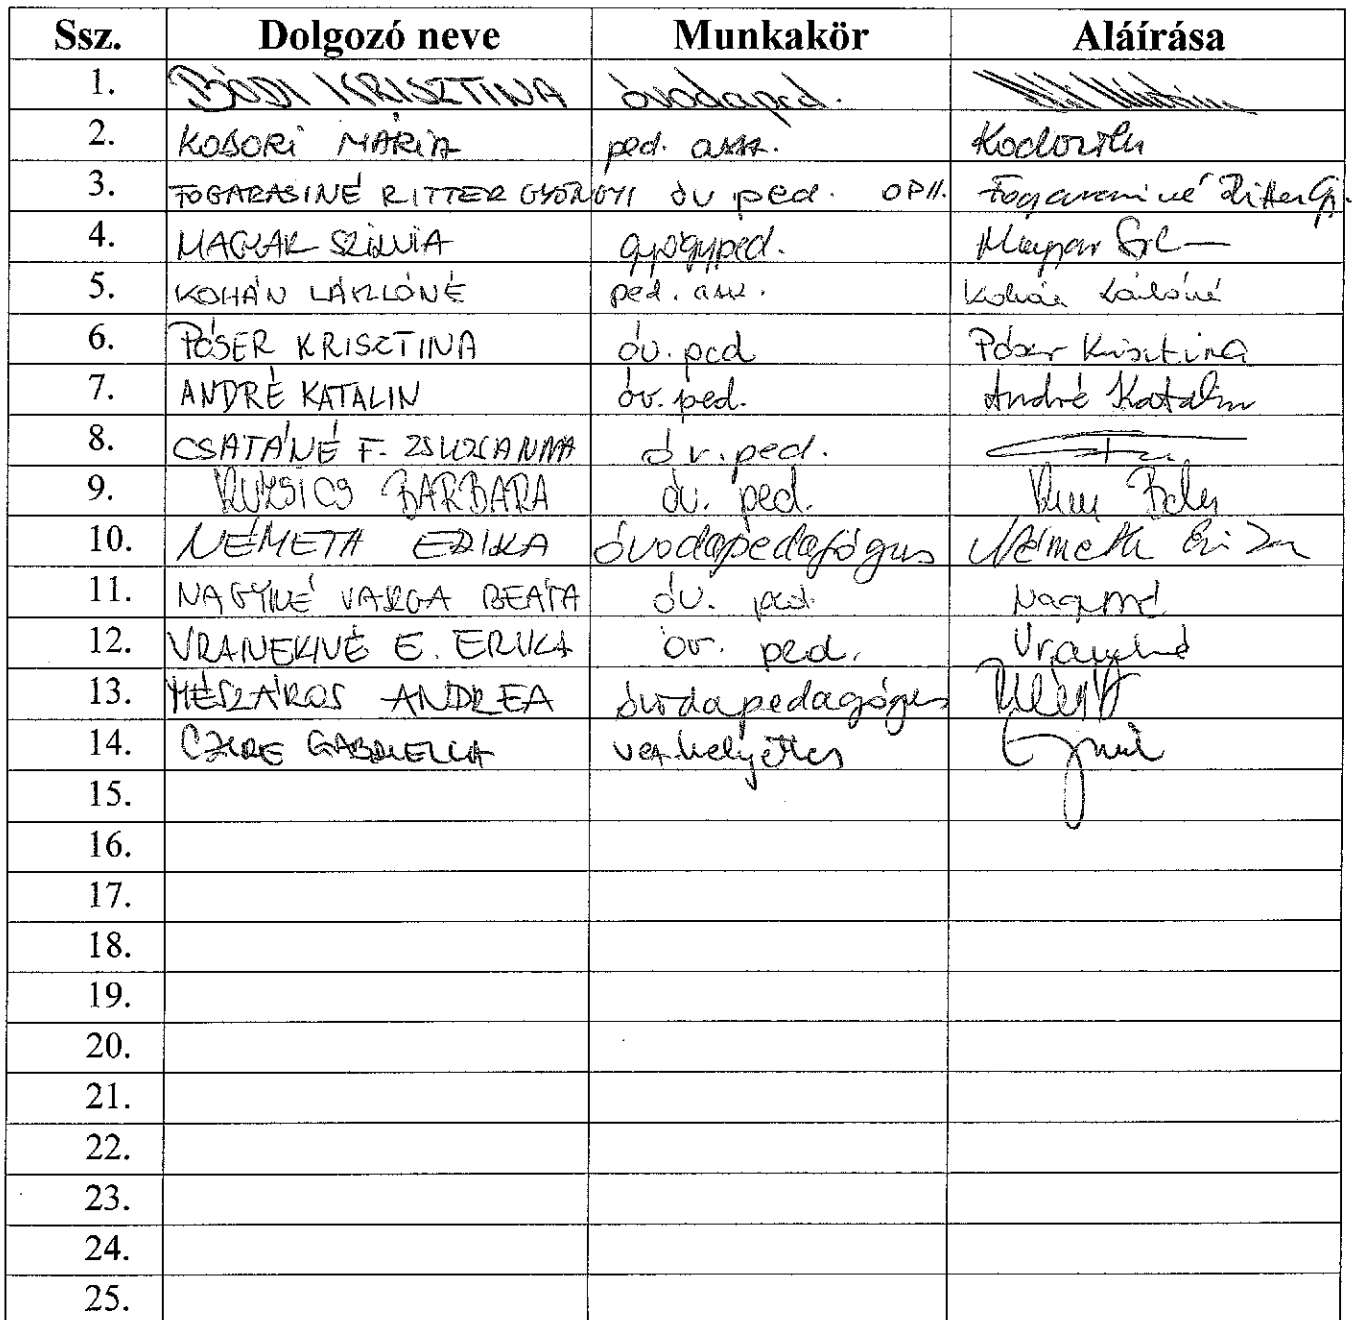 Ssz. Dolgozó neve Munkakör Aláírása
1. BÓDI KRISZTINA óvodaped.
2. KOBORI MÁRIA ped. assz.
3. FOGARASINÉ RITTER GYÖNGYI óv ped. OPH. Fogarasiné Ritter Gy.
4. MAGYAR SZILVIA gyógyped. Magyar
5. KOHÁN LÁSZLÓNÉ ped. assz. Kohán Lászlóné
6. PÓSER KRISZTINA óv. ped Póser Krisztina
7. ANDRÉ KATALIN óv. ped. André Katalin
8. CSATÁNÉ F. ZSUZSANNA óv. ped.
9. BARBARA óv. ped.
10. NÉMETH ERIKA óvodapedagógus Németh Erika
11. NAGYNÉ VARGA BEÁTA óv. ped. Nagyné
12. VRANEKNÉ E. ERIKA óv. ped.
13. MÉSZÁROS ANDREA óvodapedagógus
14. GABRIELLA vez. helyettes
15.
16.
17.
18.
19.
20.
21.
22.
23.
24.
25.